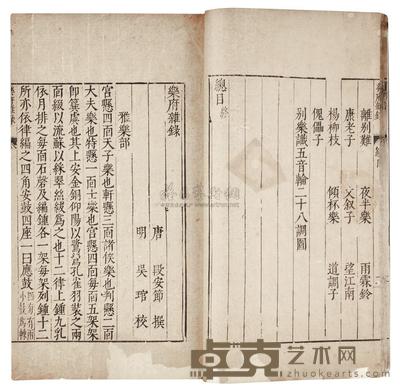 離別難 夜半樂 雨霖鈴
康老子 文叙子 望江南
楊柳枝 傾杯樂 道調子
傀儡子
別樂識五音輪二十八調圖
總目 終
樂府雜錄
唐 段安節 撰
明 吳琯 校
雅樂部
宮懸四面天子樂也軒懸三面諸侯樂也判懸二面
大夫樂也特懸一面士樂也宮懸四面每面五架架
即簨虡也其上安金銅仰陽以鷺鷥孔雀羽裝之兩
面綴以流蘇以綵翠絲紱為之也十二律上鍾九乳
依月排之每面石磬及編鍾各一架每架列鍾十二
所亦依律編之四角安鼓四座一曰應鼓
卓克艺术网